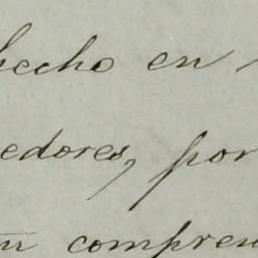 hecho en
edores, por
compren